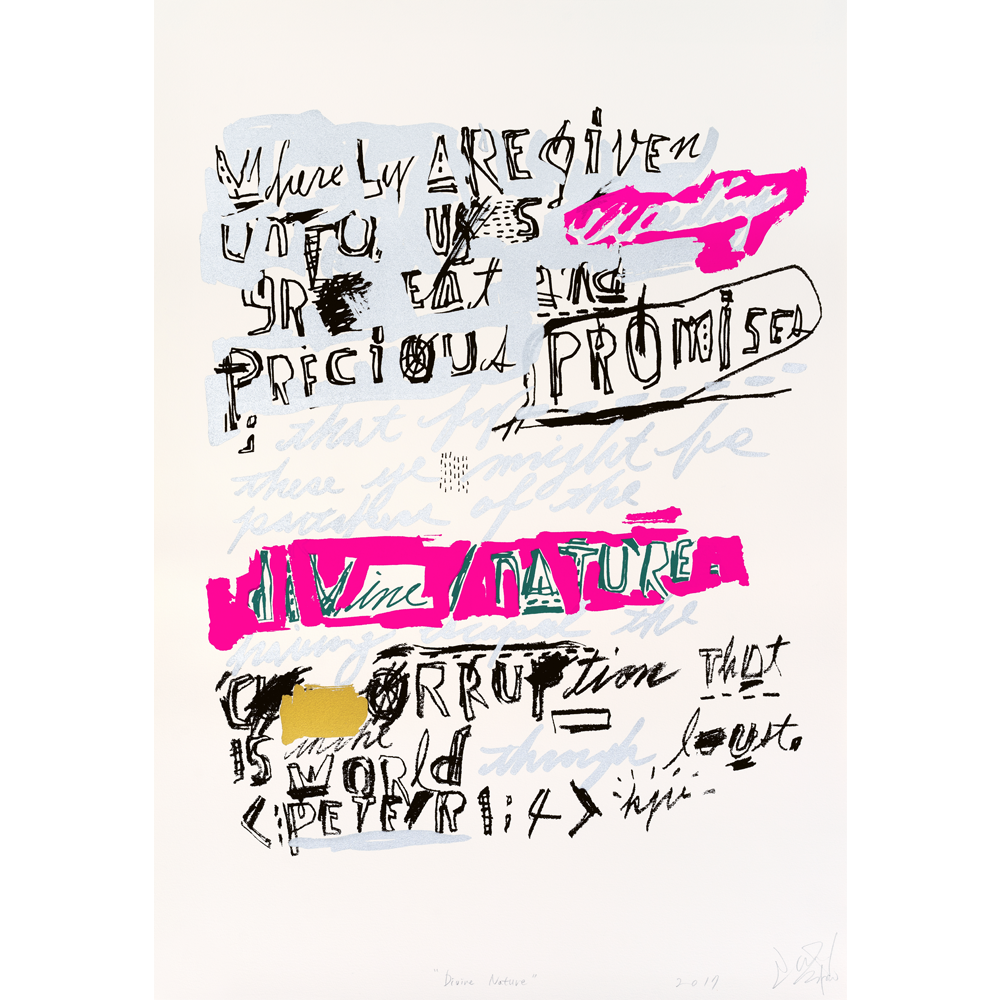 Whereby ARE given
unto us exceeding
great and
PRECIOUS PROMISES
: that by
these ye might be
partakers of the
diVine / NATURE
having escaped the
CORRUPtion That
IS in the WORLD through lust.
<:PETER 1:4> kjv
"Divine Nature" 2017